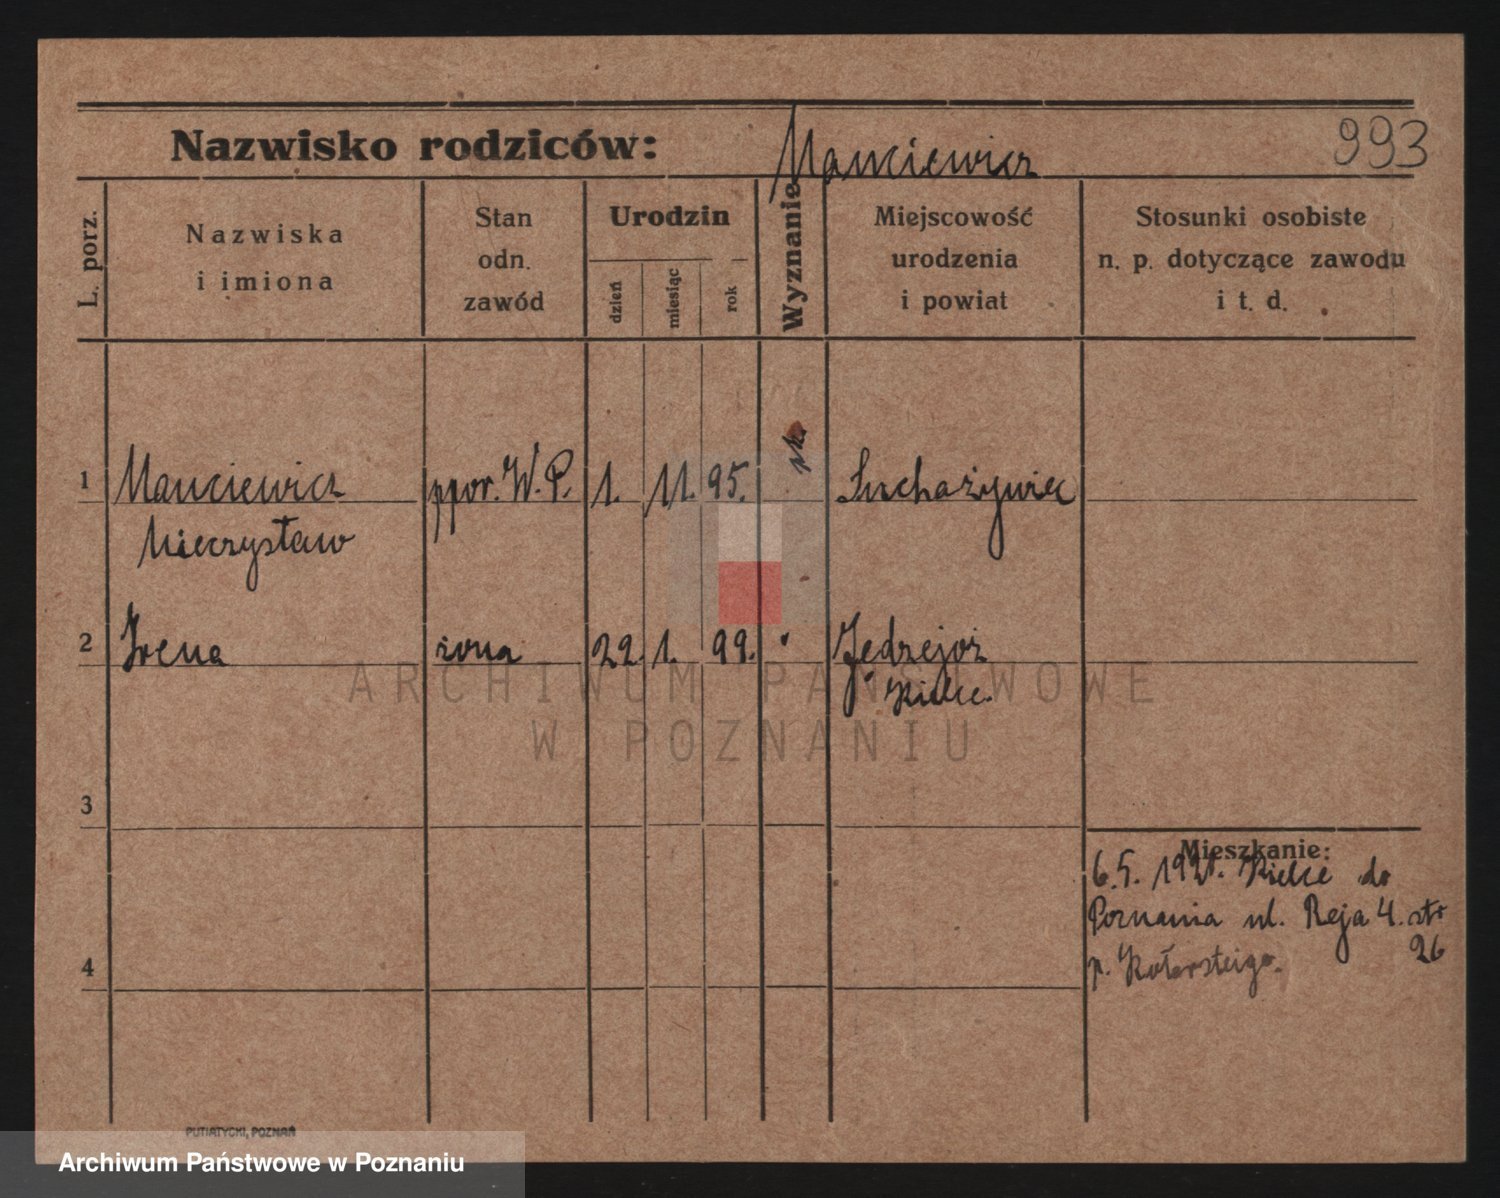 993
Nazwisko rodziców: Manciewicz
L. porz.
Nazwiska
i imiona
Stan
odn.
zawód
Urodzin
dzień
miesiąc
rok
Wyznanie
Miejscowość
urodzenia
i powiat
Stosunki osobiste
n. p. dotyczące zawodu
i t. d.
1 Manciewicz ppor. W. P. 1. 11. 95. rk. Suchażywiec
Mieczysław
2 Irena żona 22. 1. 99. Jędrzejoż
Kielce.
ARCHIWUM PAŃSTWOWE
W POZNANIU
3
Mieszkanie:
6.5. 1921. Kielce do
Poznania ul. Reja 4. ptr
26
4 p.
PUTIATYCKI, POZNAŃ
Archiwum Państwowe w Poznaniu